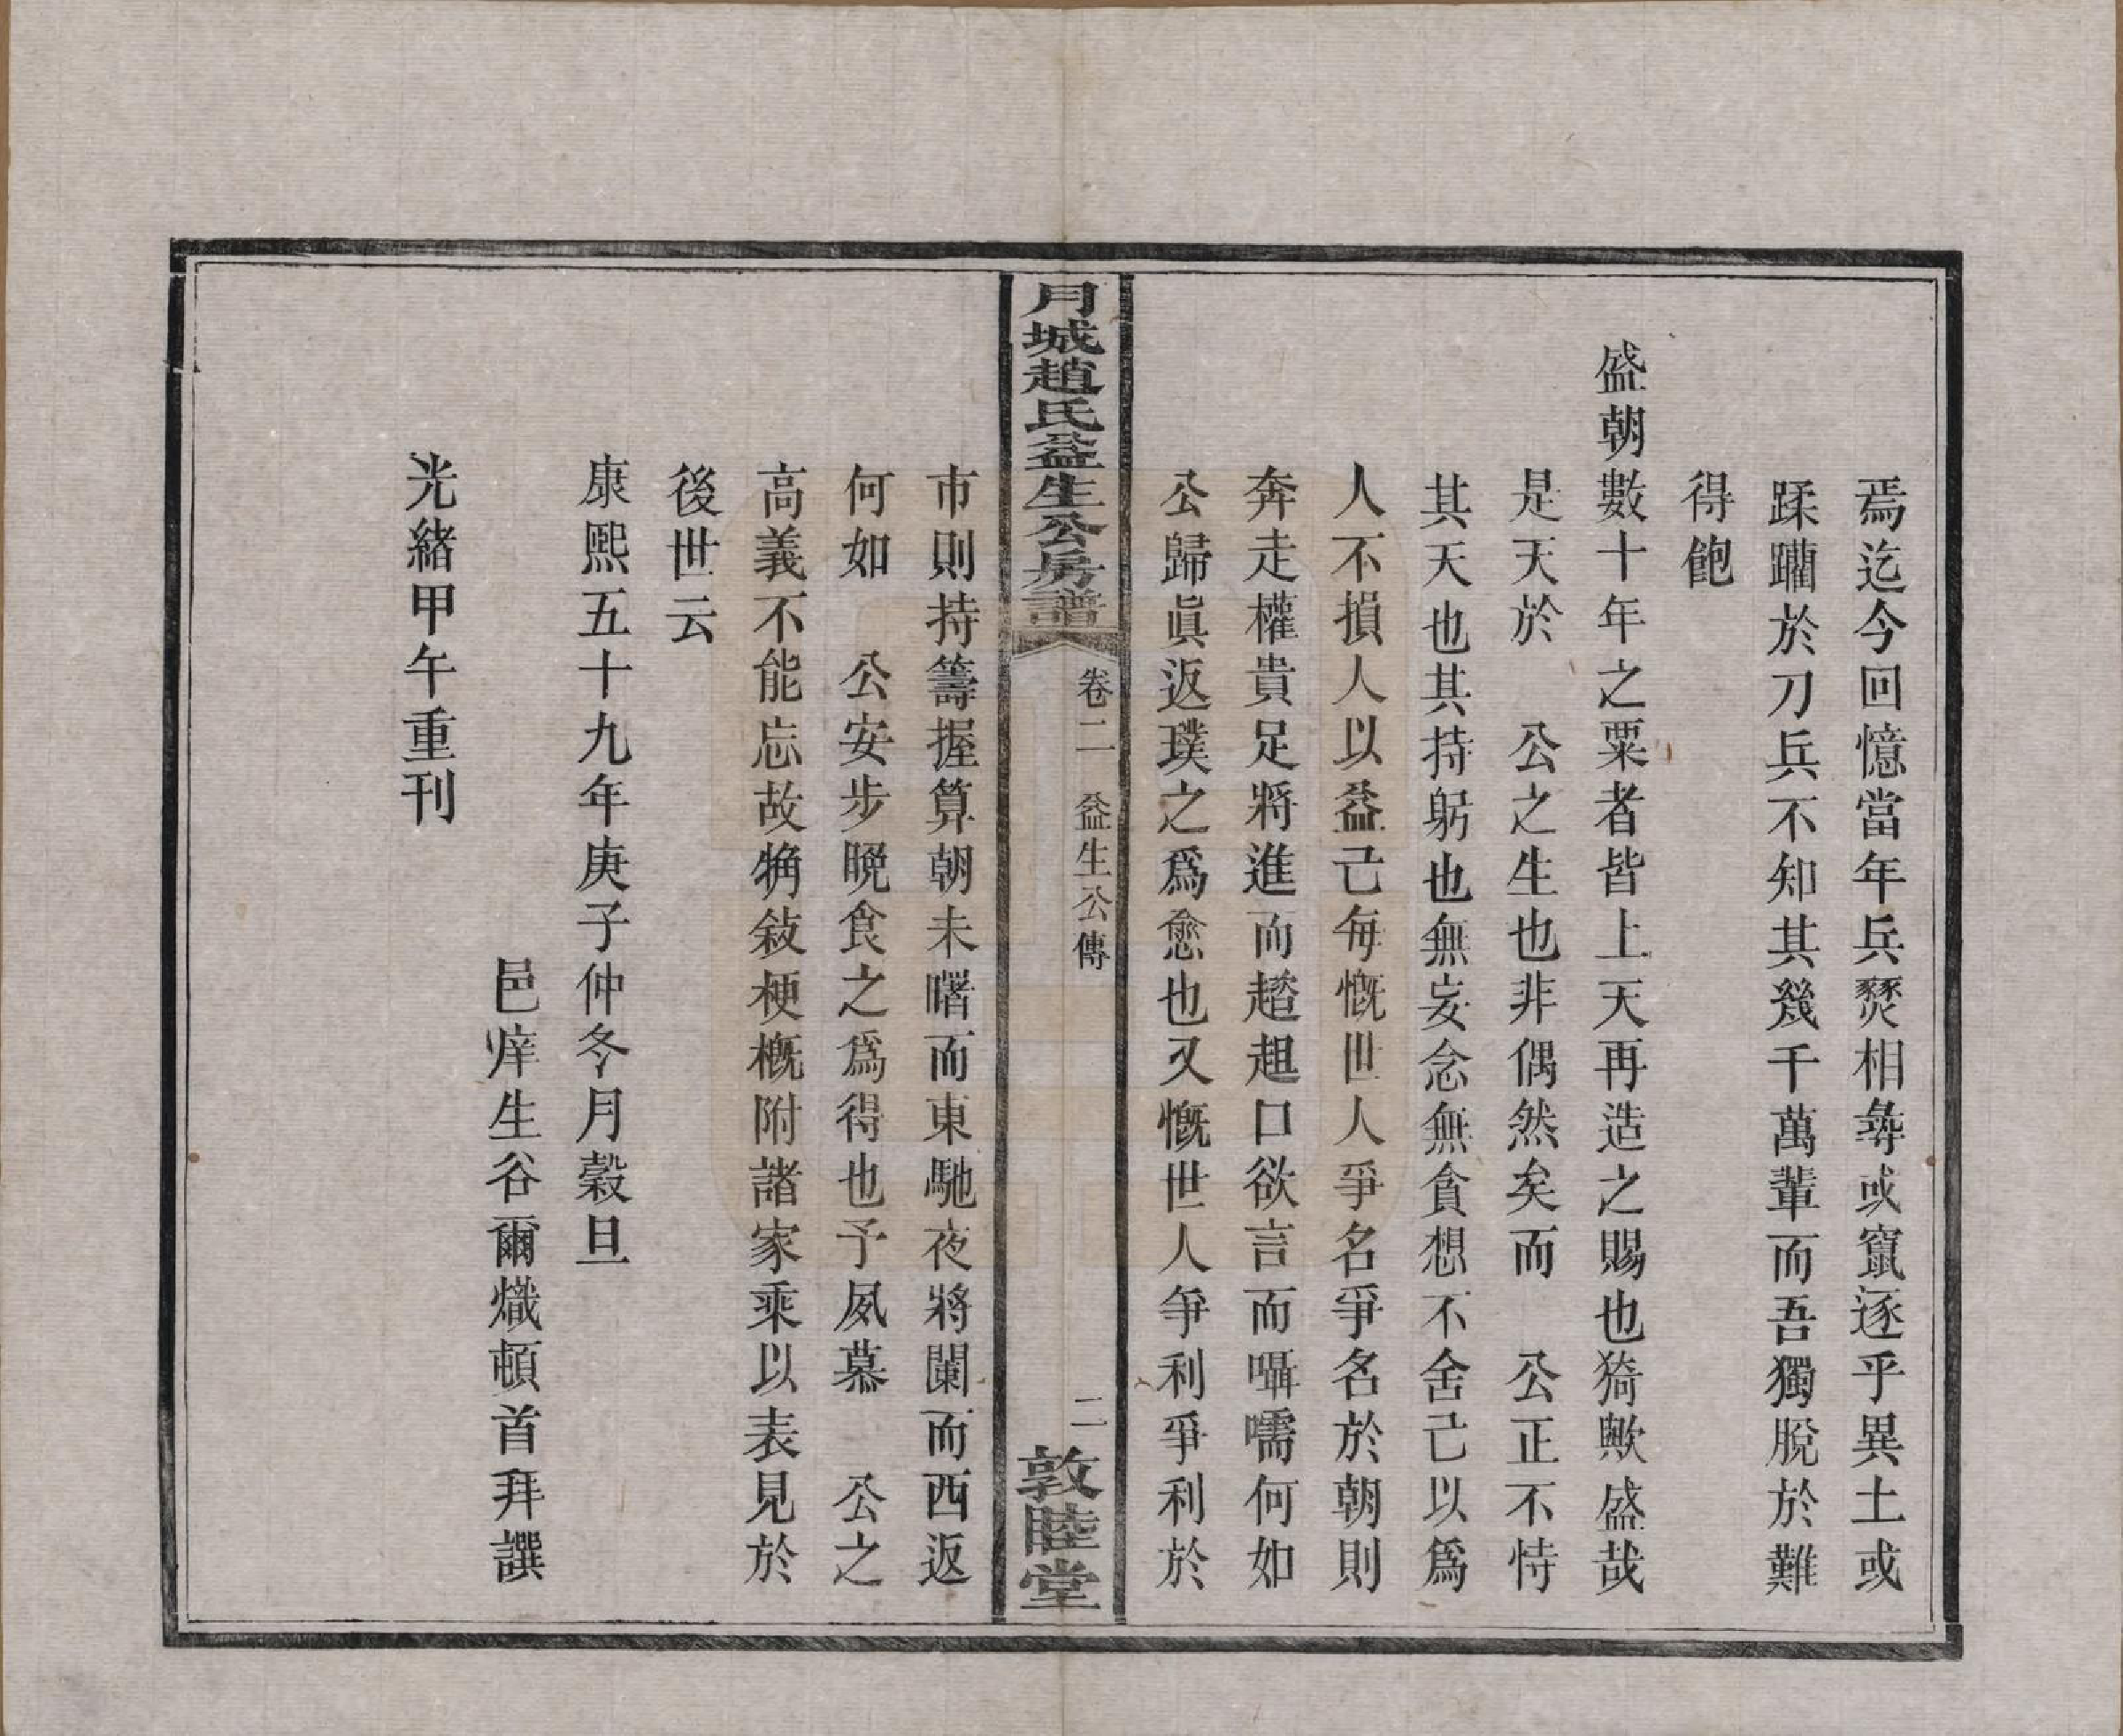 焉迄今回憶當年兵燹相尋或竄逐乎異土或
蹂躪於刀兵不知其幾千萬輩而吾獨脫於難
得飽
盛朝數十年之粟者皆上天再造之賜也猗歟盛哉
是天於　公之生也非偶然矣而　公正不恃
其天也其持躬也無妄念無貪想不舍己以爲
人不損人以益己每慨世人爭名爭名於朝則
奔走權貴足將進而趦趄口欲言而囁嚅何如
公歸眞返璞之爲愈也又慨世人爭利爭利於
月城趙氏益生公房譜
卷二　益生公傳
二
敦睦堂
市則持籌握算朝未曙而東馳夜將闌而西返
何如　公安步晚食之爲得也予夙慕　公之
高義不能忘故觕敍梗概附諸家乘以表見於
後世云
康熙五十九年庚子仲冬月穀旦
邑庠生谷爾熾頓首拜譔
光緒甲午重刊